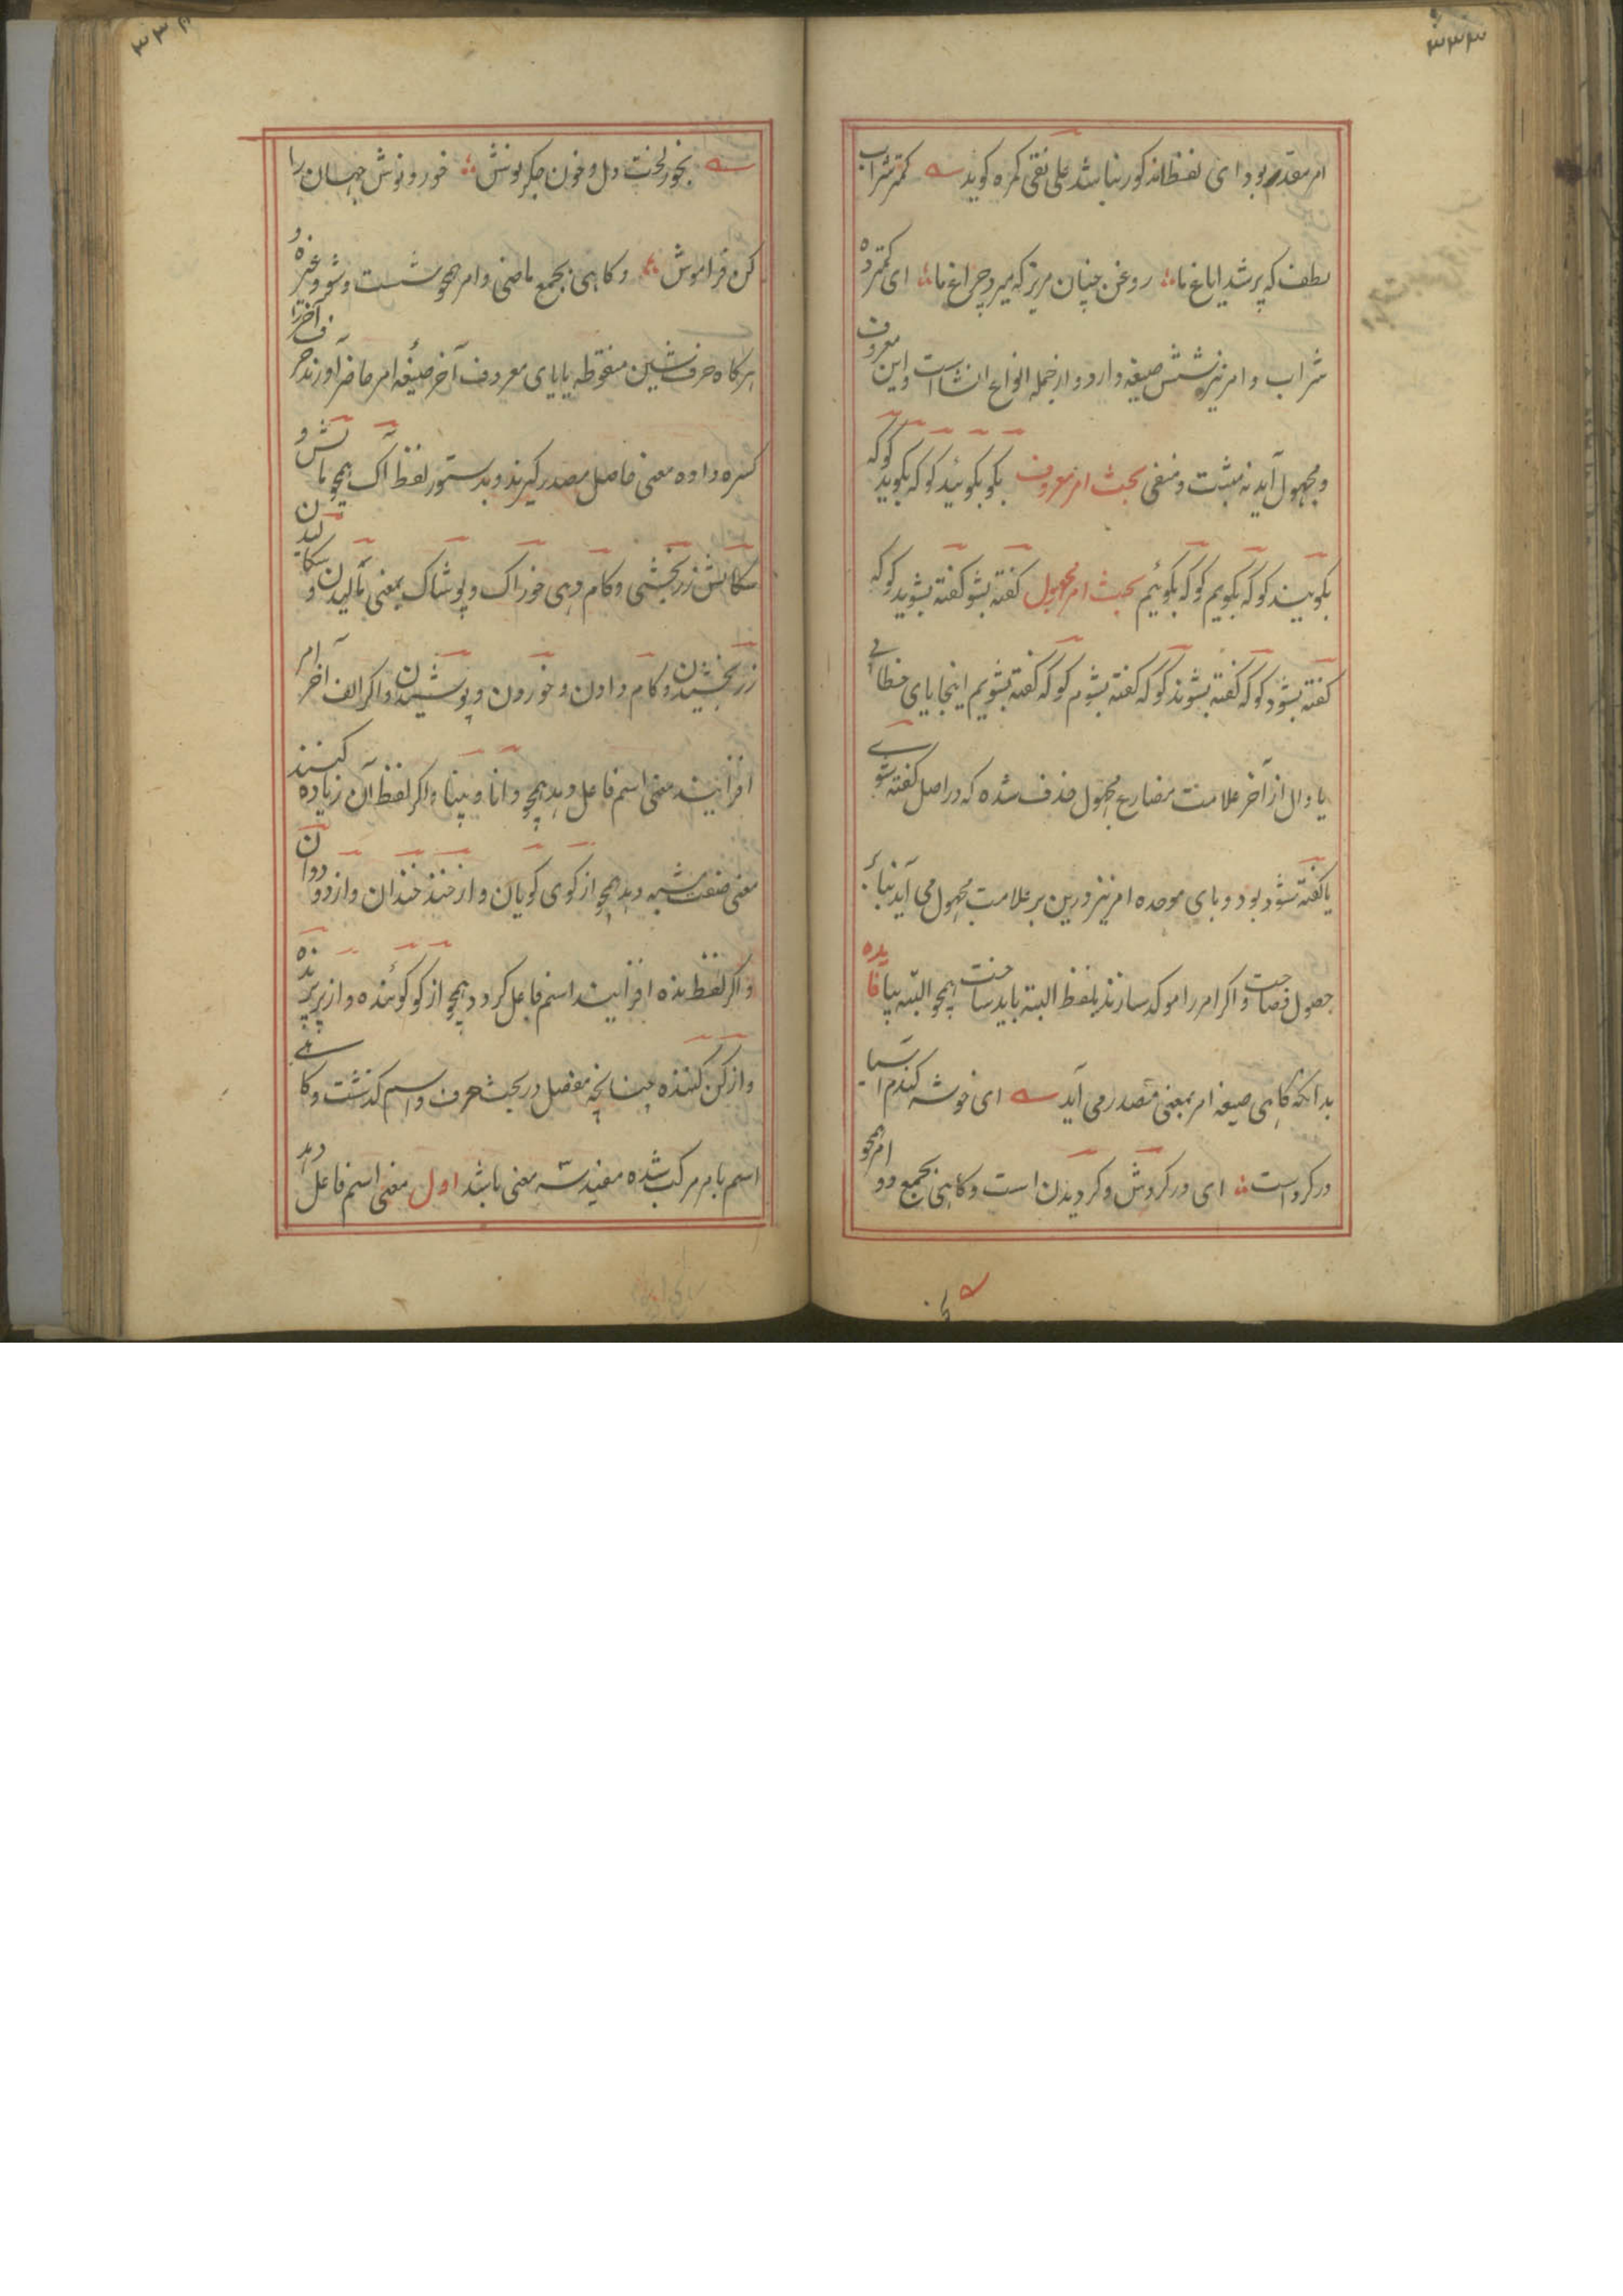 ۳۳۳
امر مقدر بود ای لفظا مذکور نباشد علی نقی کمره گوید کمتر شراب
لطف که پر شد ایاغ ما روغن چنان مریز که میرد چراغ ما ای کمتر ده
شراب و امر نیز شش صیغه دارد و از جمله انواع انشا است و این معروف
و مجهول آید نه مثبت و منفی بحث امر معروف بگو بگوئید گو که بگوید گو که
بگویند گو که بگویم گو که بگوئیم بحث امر مجهول گفته بشو گفته بشوید گو که
گفته بشود گو که گفته بشوند گو که گفته بشوم گو که گفته بشویم اینجا یای خطابی
یا دال از آخر علامت مضارع مجهول حذف شده که در اصل گفته شوی
یا گفته شود بود و بای موحده امر نیز درین بر علامت مجهول می آید بنابر
حصول فصاحت و اگر امر را موکد سازند بلفظ البته باید ساخت همچو البته بیا فایده
بدانکه گاهی صیغه امر بمعنی مصدر می آید ای خوشه گندم آسیا
در گرد است ای در گردش و گردیدن است و گاهی بجمع دو امر همچو
۳۳۴
بخور لخت دل و خون جگر نوش خور و نوش جهان را
کن فراموش و گاهی بجمع ماضی و امر همچو شست و شو و غیره و
هرگاه حرف شین منقوطه یا یای معروف آخر صیغه امر حاضر آورند حرف آخر را
کسره داده معنی حاصل مصدر گیرند و بدستور لفظ آک همچو مالش و
سگالش زربخشی و کام دهی خوراک و پوشاک بمعنی مالیدن و سگالیدن
زر بخشیدن و کام دادن و خوردن و پوشیدن و اگر الف آخر امر
افزایند معنی اسم فاعل دهد همچو دانا و بینا و اگر لفظ آن زیاده کنند
معنی صفت مشبه دهد همچو از گوی گویان و از خند خندان و از دو دوان
و اگر لفظ نده افزایند اسم فاعل گردد همچو از گو گوئنده و از پر پرنده
و از کن کننده چنانچه مفصل در بحث حرف و اسم گذشت و گاهی
اسم با امر مرکب شده مفید سه معنی باشد اول معنی اسم فاعل دهد